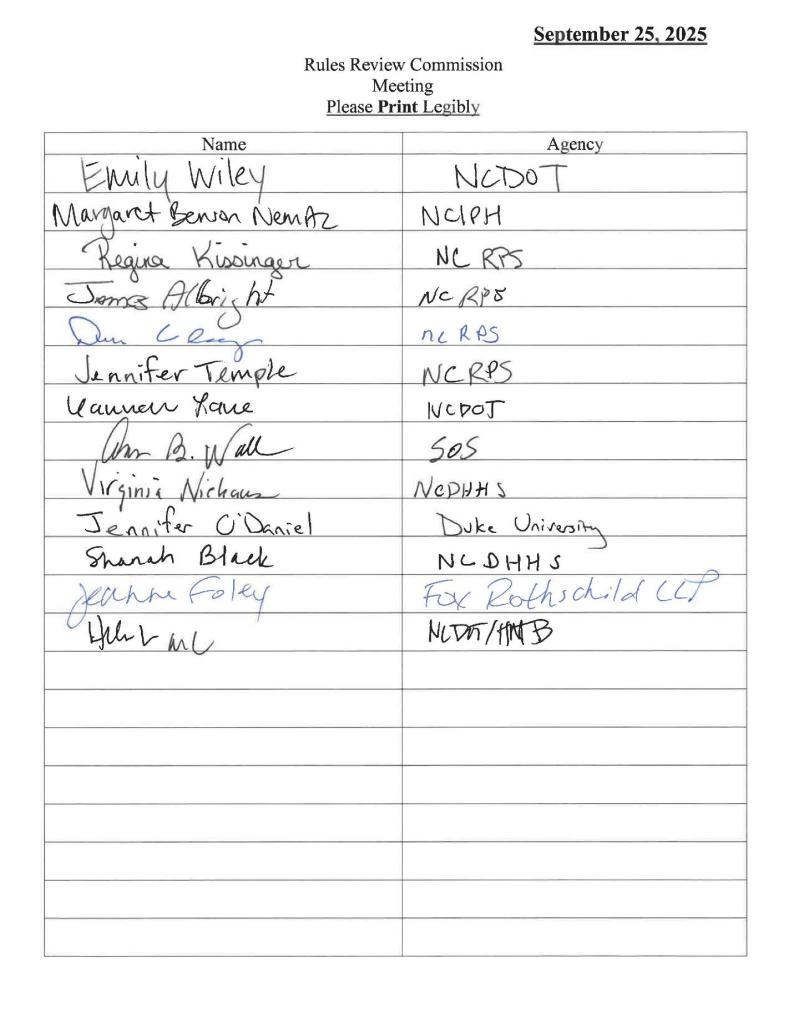 September 25, 2025
Rules Review Commission
Meeting
Please Print Legibly
Name Agency
Emily Wiley NCDOT
Margaret Benson Nemitz NCIPH
Regina Kissinger NC RPS
James Albright NC RPS
NC RPS
Jennifer Temple NCRPS
Hannah NCDOT
Ann B. Wall SOS
Virginia Niehaus NCDHHS
Jennifer O'Daniel Duke University
Shanah Black NCDHHS
Jeanne Foley Fox Rothschild LLP